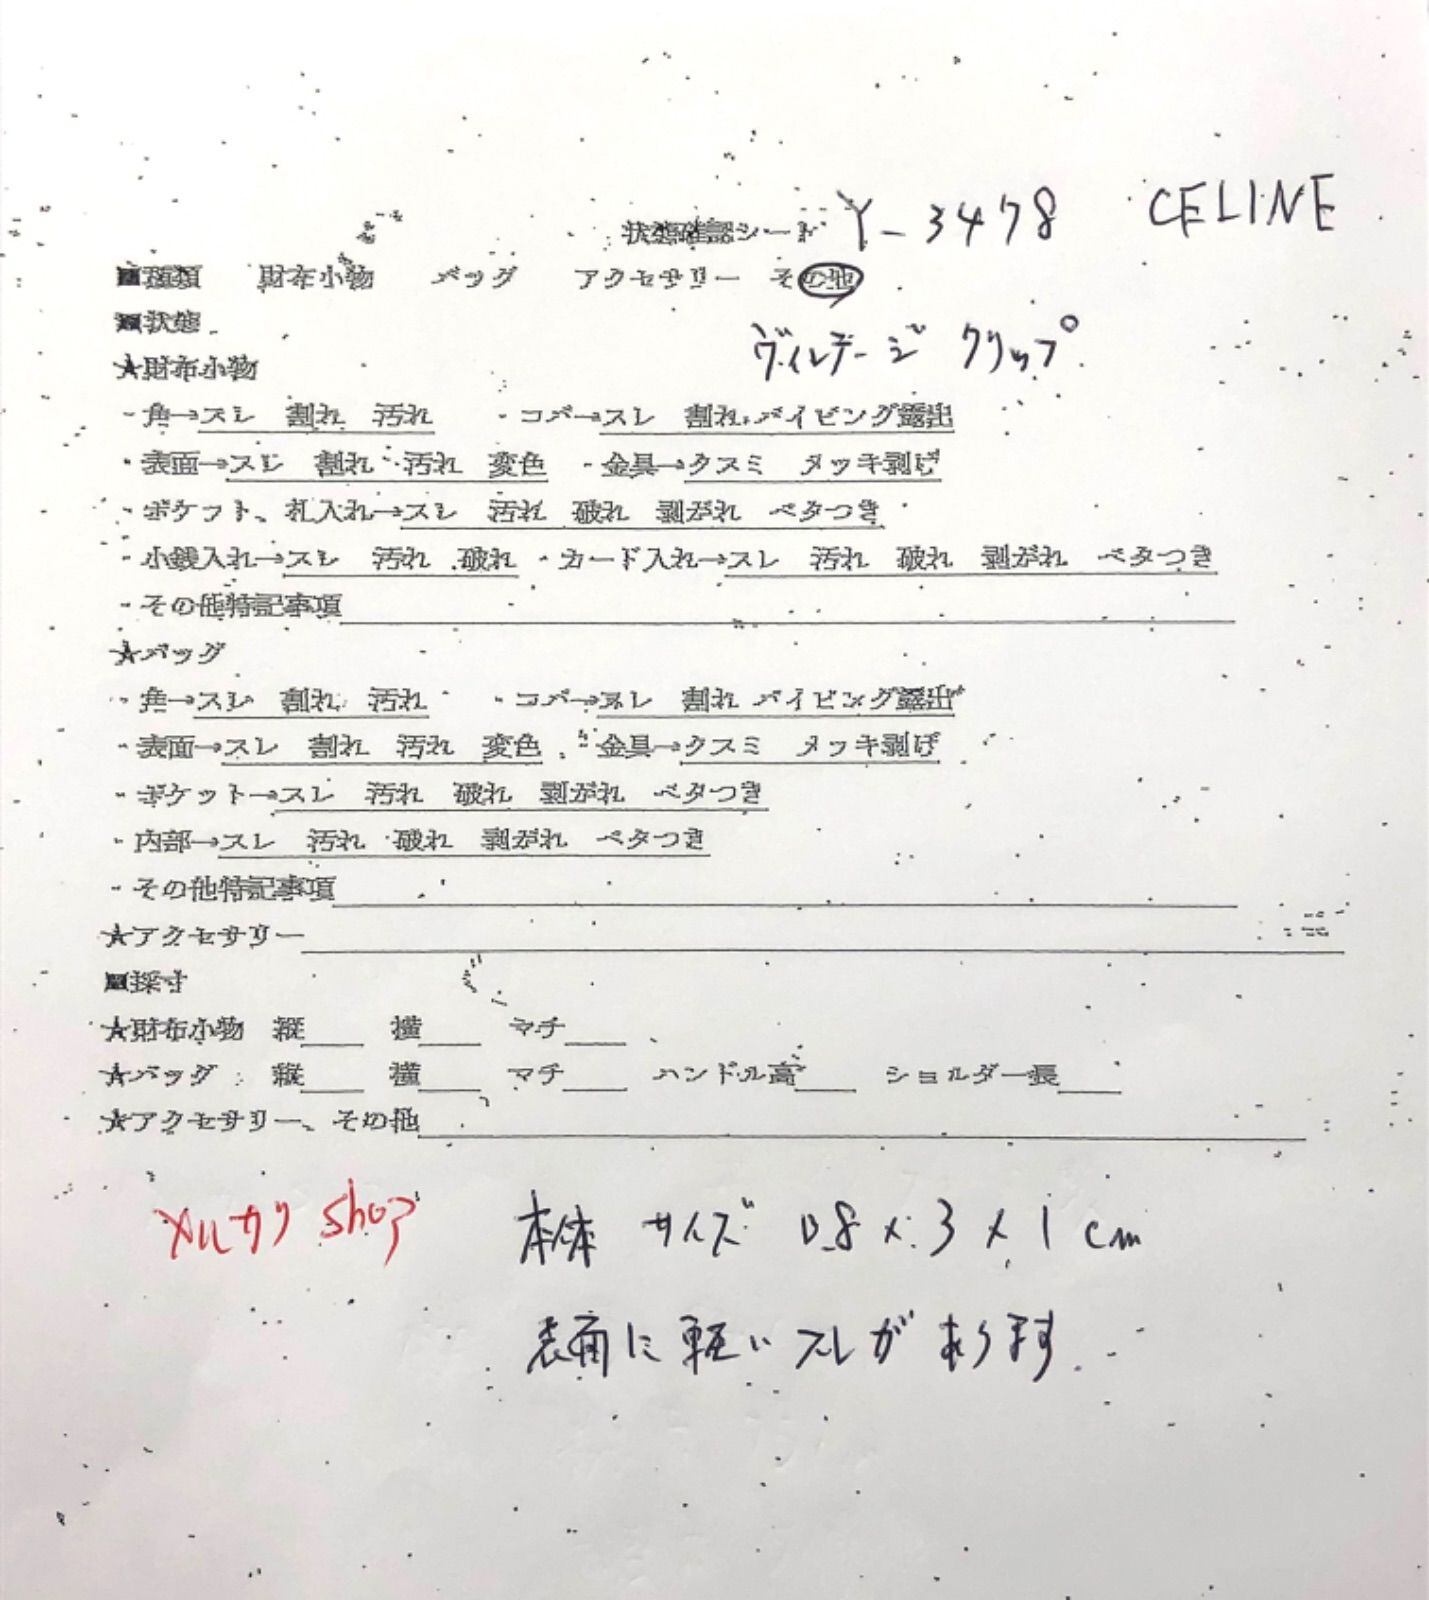 状態確認シート Y-3478 CELINE
■種類 財布小物 バッグ アクセサリー その他
■状態 ヴィンテージ クリップ
★財布小物
・角→スレ 割れ 汚れ ・コバ→スレ 割れ パイピング露出
・表面→スレ 割れ 汚れ 変色 ・金具→クスミ メッキ剥げ
・ポケット、札入れ→スレ 汚れ 破れ 剥がれ ベタつき
・小銭入れ→スレ 汚れ 破れ ・カード入れ→スレ 汚れ 破れ 剥がれ ベタつき
・その他特記事項
★バッグ
・角→スレ 割れ 汚れ ・コバ→スレ 割れ パイピング露出
・表面→スレ 割れ 汚れ 変色 ・金具→クスミ メッキ剥げ
・ポケット→スレ 汚れ 破れ 剥がれ ベタつき
・内部→スレ 汚れ 破れ 剥がれ ベタつき
・その他特記事項
★アクセサリー
■採寸
★財布小物 縦 横 マチ
★バッグ 縦 横 マチ ハンドル高 ショルダー長
★アクセサリー、その他
メルカリ shop 本体 サイズ 0.8 × 3 × 1 cm
表面に軽いスレがあります